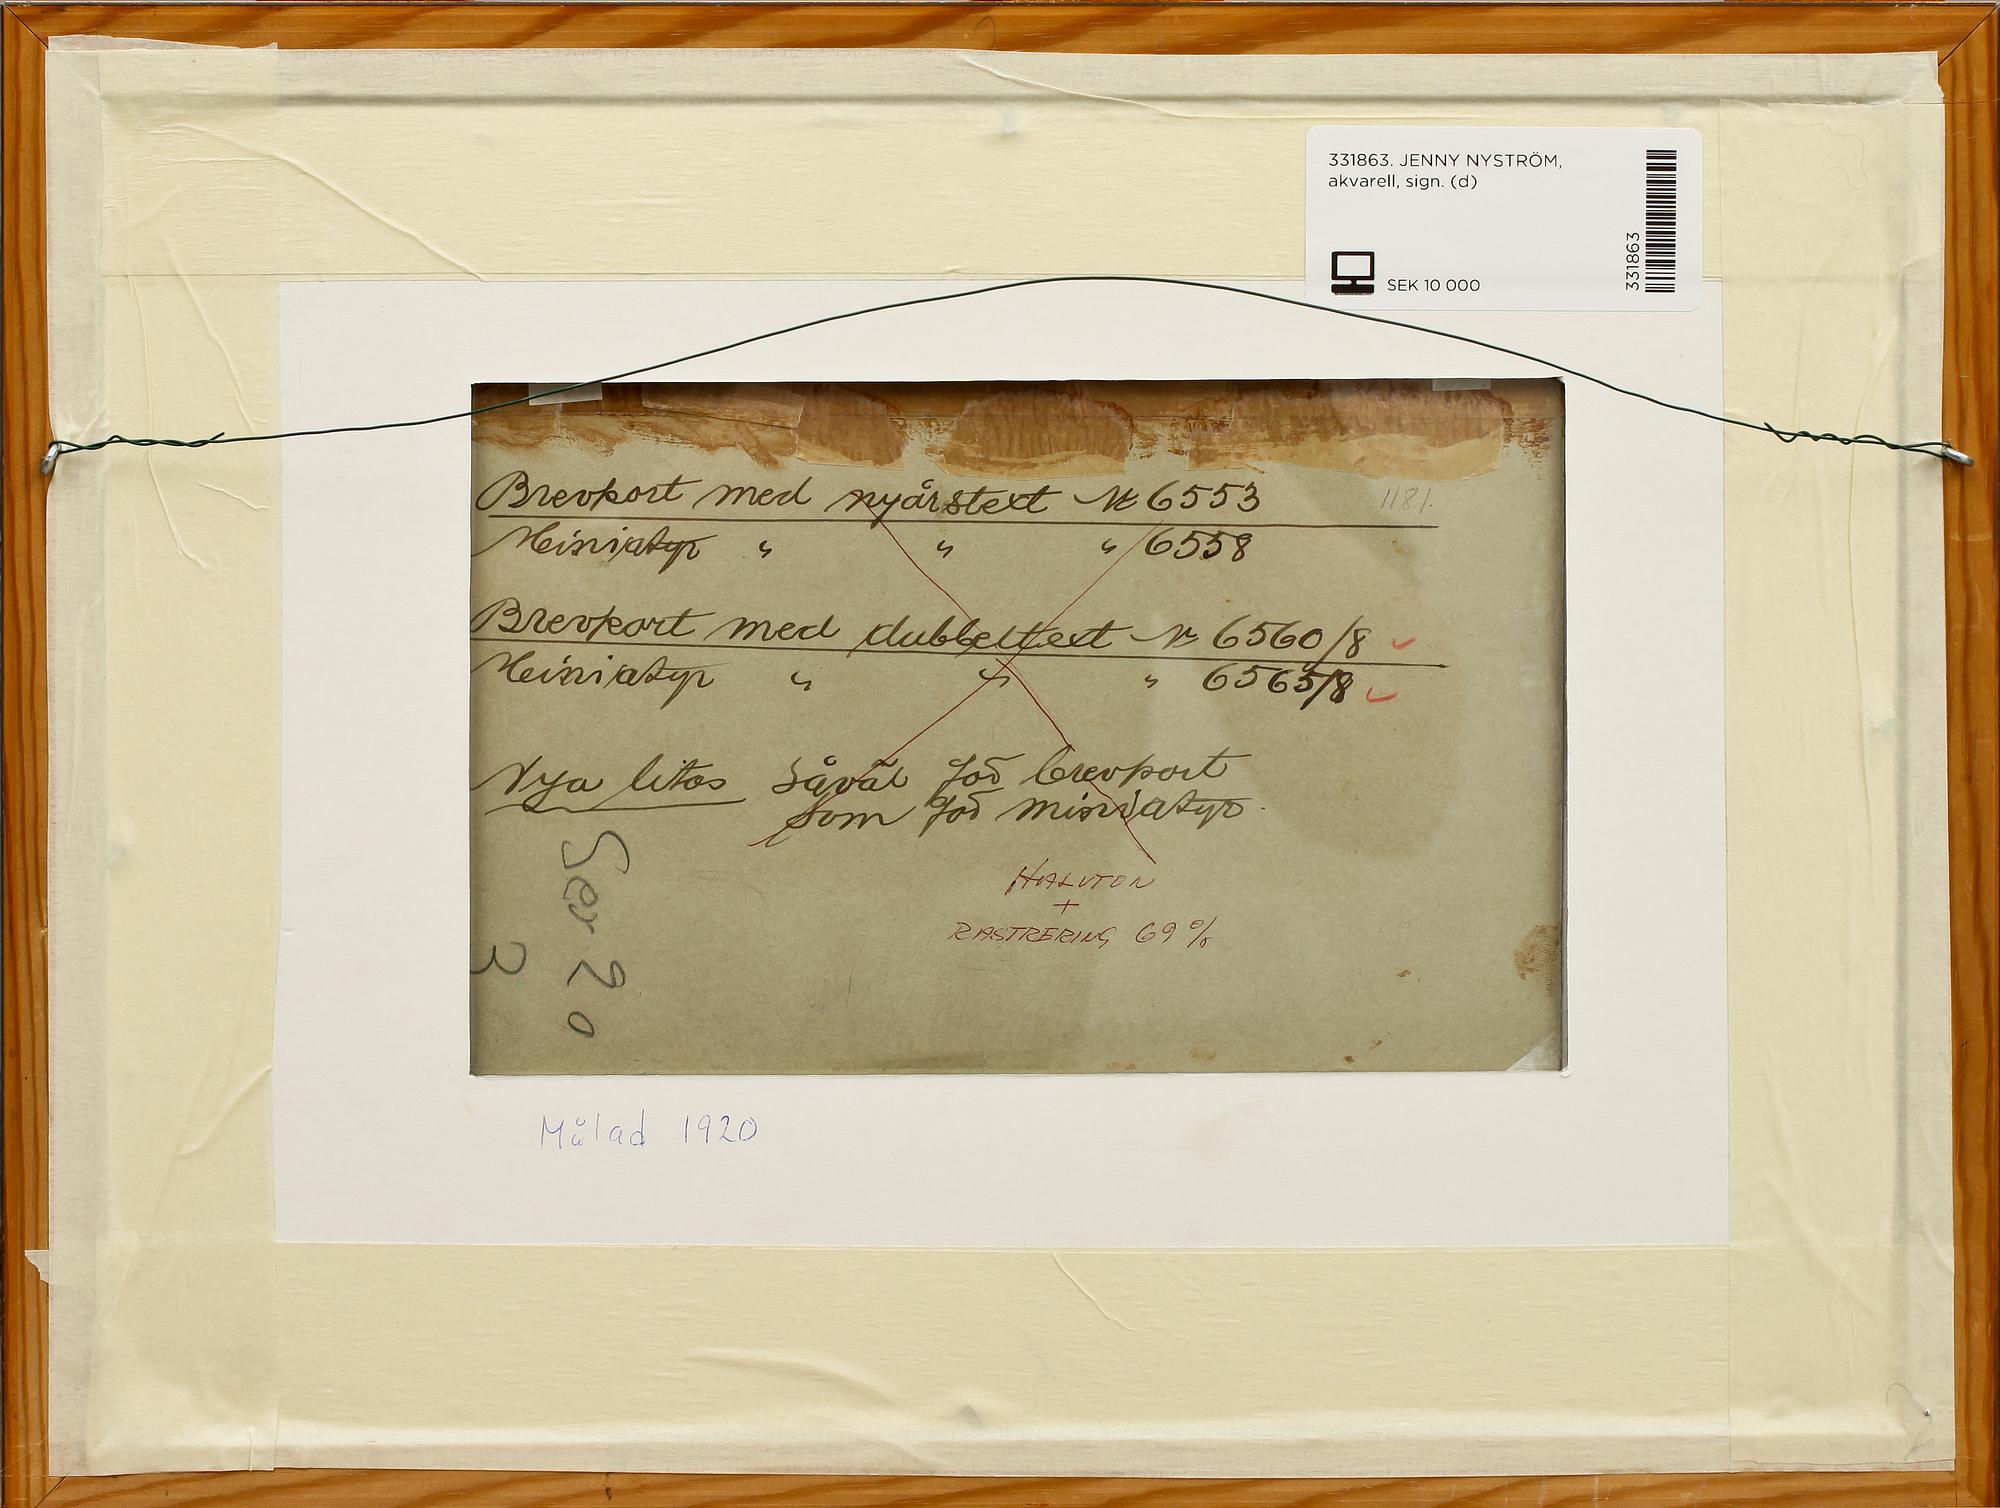 331863. JENNY NYSTRÖM,
akvarell, sign. (d)
SEK 10 000
331863
Brevkort med nyårstext Nr 6553
1181.
Miniatyr " " " 6558
Brevkort med dubbeltext Nr 6560/8
Miniatyr " " " 6565/8
Nya litos såväl för brevkort
som för miniatyr.
HALVTON
+
RASTRERING 69%
Ser 20
3
Målad 1920